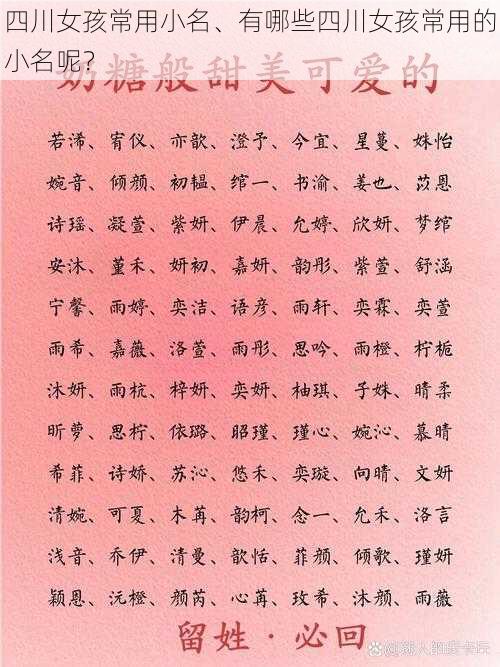 四川女孩常用小名、有哪些四川女孩常用的
小名呢?
奶糖般甜美可爱的
若浠、宥仪、亦歆、澄予、今宜、星蔓、姝怡
婉音、倾颜、初韫、绾一、书渝、姜也、苡恩
诗瑶、凝萱、紫妍、伊晨、允婷、欣妍、梦绾
安沐、堇禾、妍初、嘉妍、韵彤、紫萱、舒涵
宁馨、雨婷、奕洁、语彦、雨轩、奕霖、奕萱
雨希、嘉薇、洛萱、雨彤、思吟、雨橙、柠栀
沐妍、雨杭、梓妍、奕妍、柚琪、子姝、晴柔
昕萝、思柠、依璐、昭瑾、瑾心、婉沁、慕晴
希菲、诗娇、苏沁、悠禾、奕璇、向晴、文妍
清婉、可夏、木苒、韵柯、念一、允禾、洛言
浅音、乔伊、清曼、歆恬、菲颜、倾歌、瑾妍
颖恩、沅橙、颜芮、心苒、玫希、沐颜、雨薇
留姓·必回